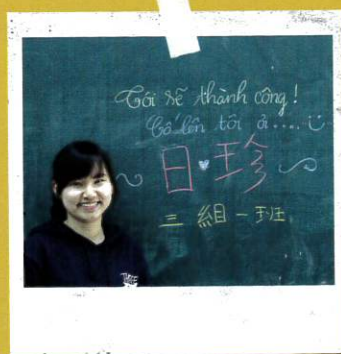 Tôi sẽ thành công!
Cố lên tôi ơi....
日♥珍
三組一班